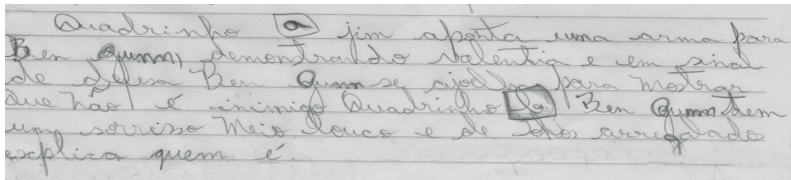 Quadrinho a jim aponta uma arma para
Ben Gunn, demonstrando valentia e em sinal
de defesa Ben Gunn se ajoelha para mostrar
que não é inimigo Quadrinho b Ben Gunn tem
um sorriso meio louco e de olhos arregalados
explica quem é.